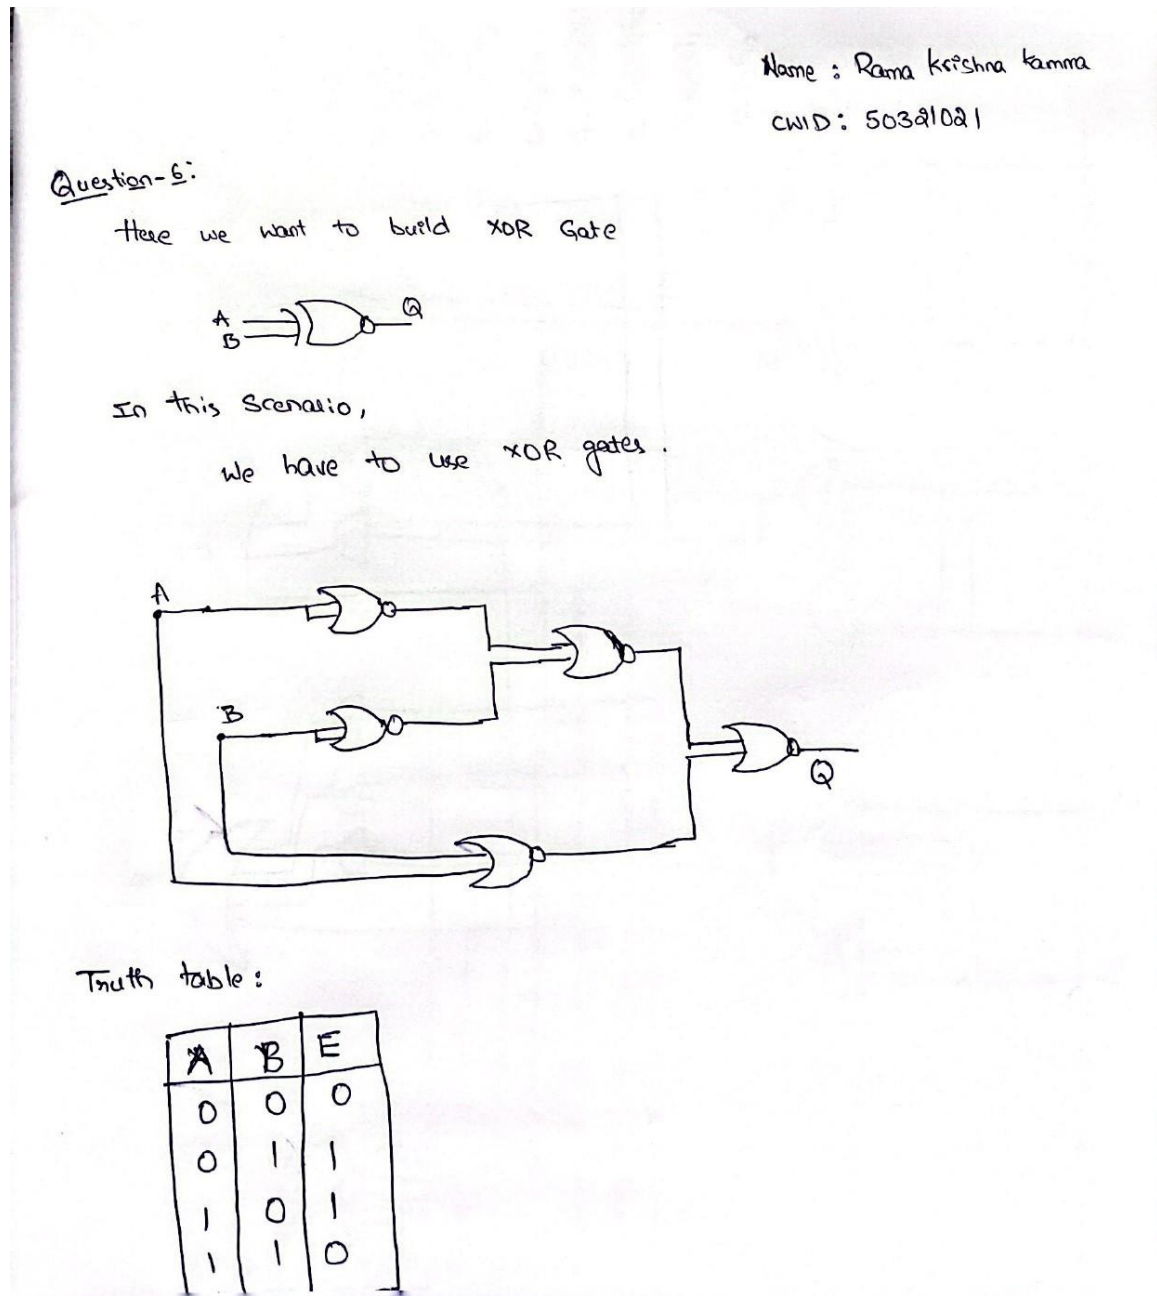 Name : Rama Krishna Kamma
CWID: 50321021
Question-6:
Here we want to build XOR Gate
A
B
Q
In this Scenario,
We have to use XOR gates.
A
B
Q
Truth table:
A B E
0 0 0
0 1 1
1 0 1
1 1 0